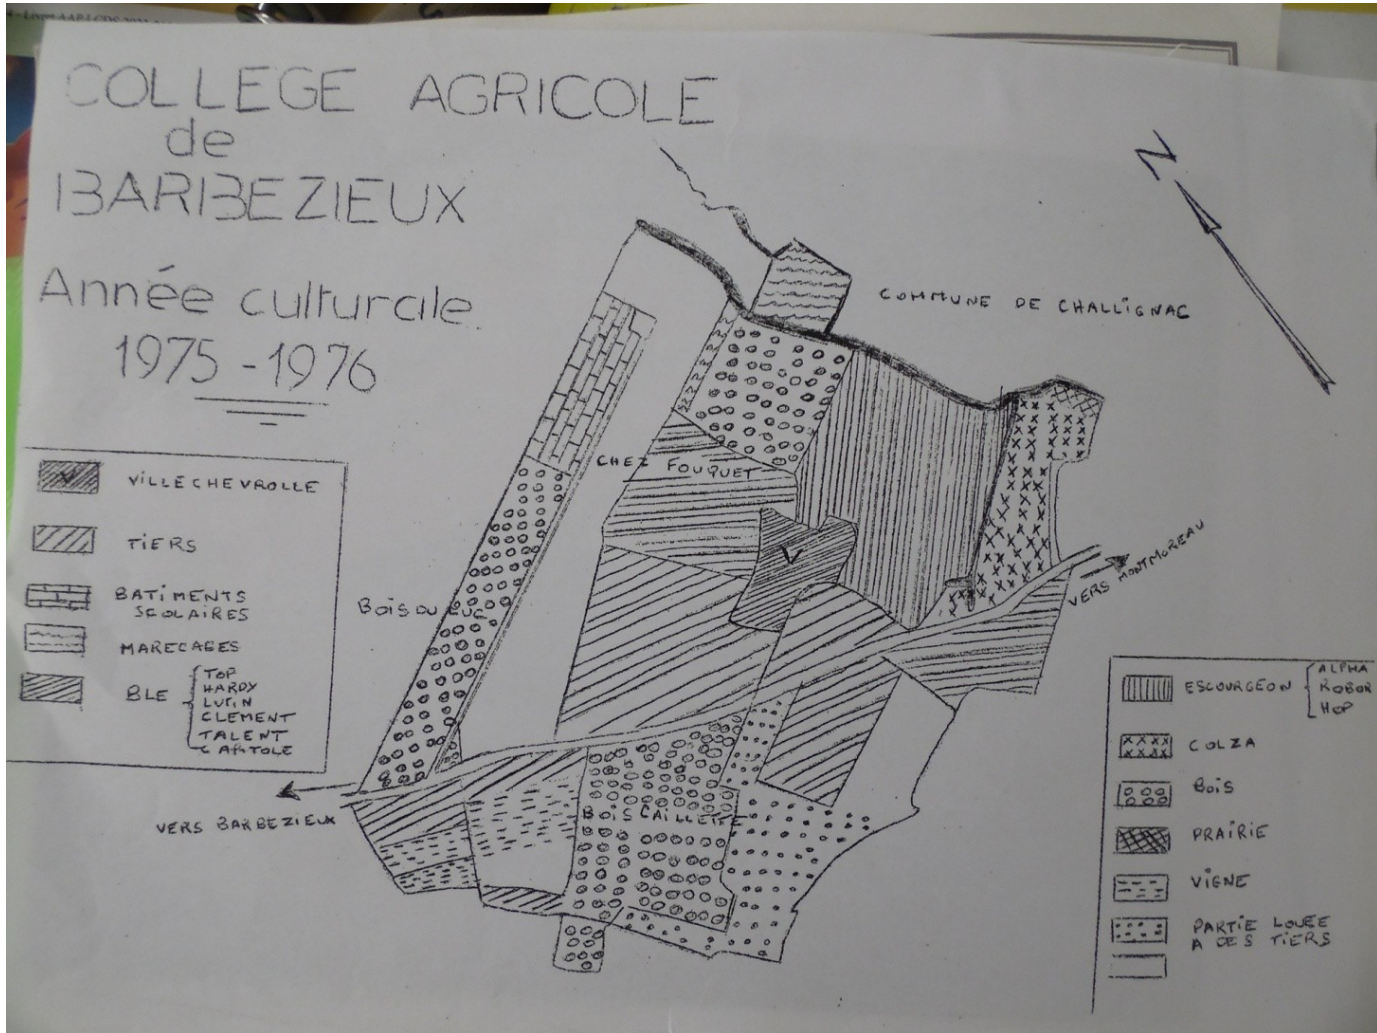 COLLEGE AGRICOLE
de
BARBEZIEUX
Année culturale
1975 - 1976
N
COMMUNE DE CHALLIGNAC
CHEZ FOUQUET
V
BOIS DU LUC
VERS MONTMOREAU
BOIS CAILLETTE
VERS BARBEZIEUX
V VILLECHEVROLLE
TIERS
BATIMENTS
SCOLAIRES
MARECAGES
BLE
TOP
HARDY
LUPIN
CLEMENT
TALENT
CAPITOLE
ESCOURGEON
ALPHA
ROBUR
HOP
COLZA
BOIS
PRAIRIE
VIGNE
PARTIE LOUÉE
A DES TIERS